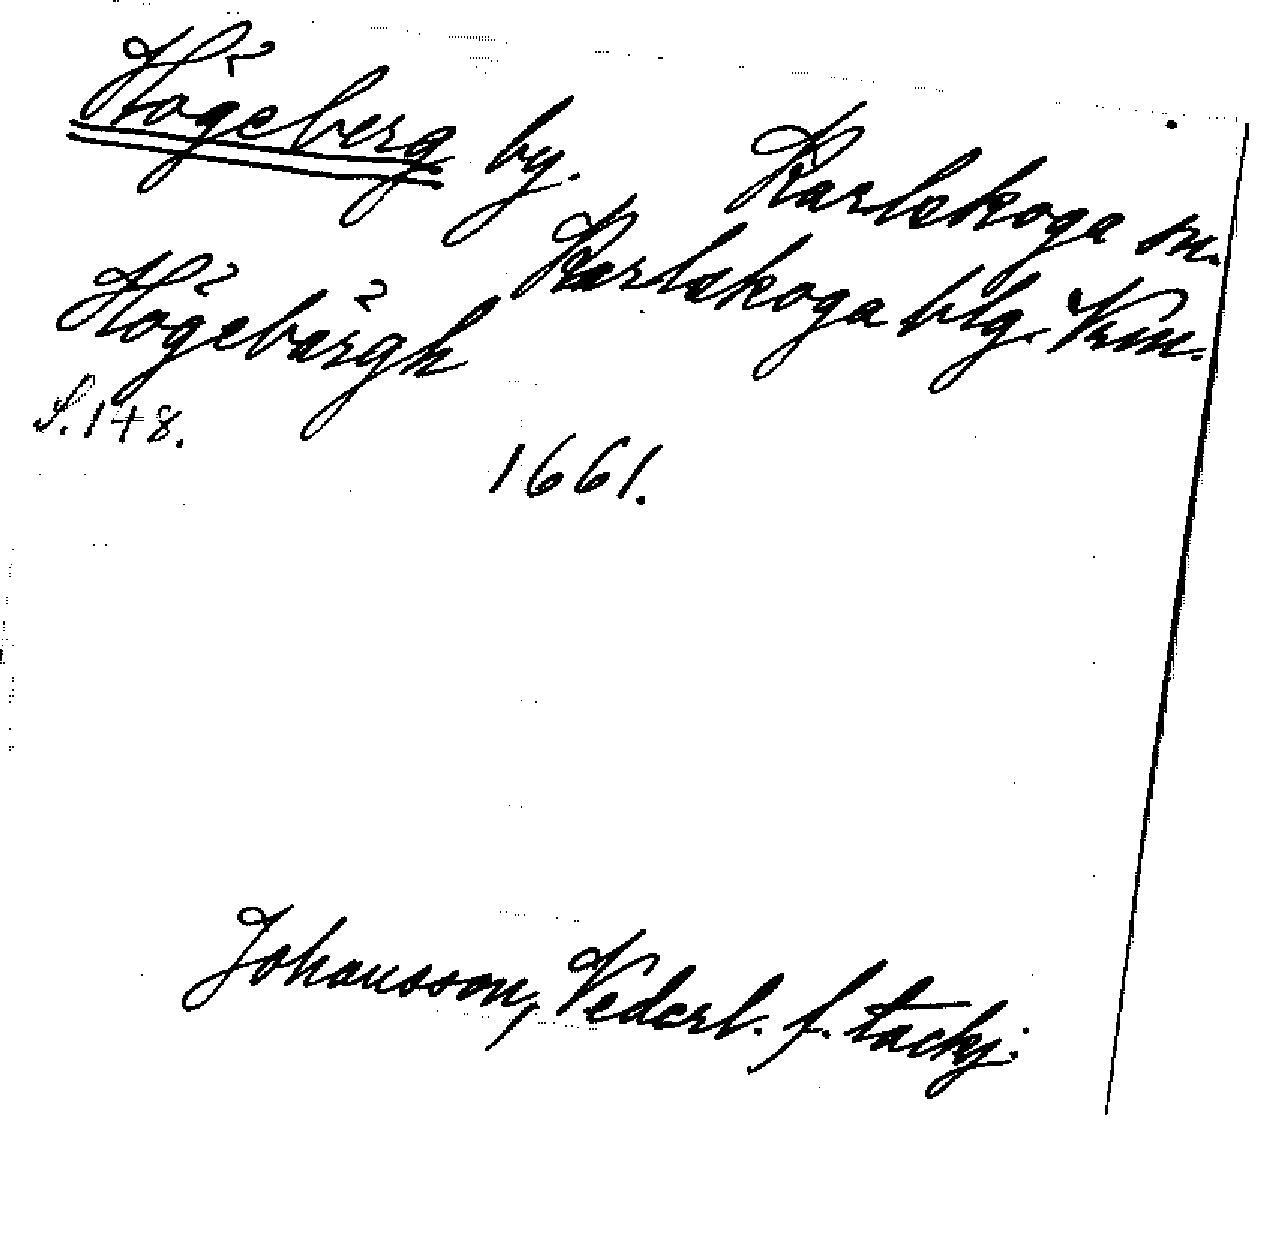 Högeberg by. Karlskoga sn.
Högebärgh Karlskoga blg. Vrm.
S. 148.
1661.
Johansson, Vederl. f. tackj.